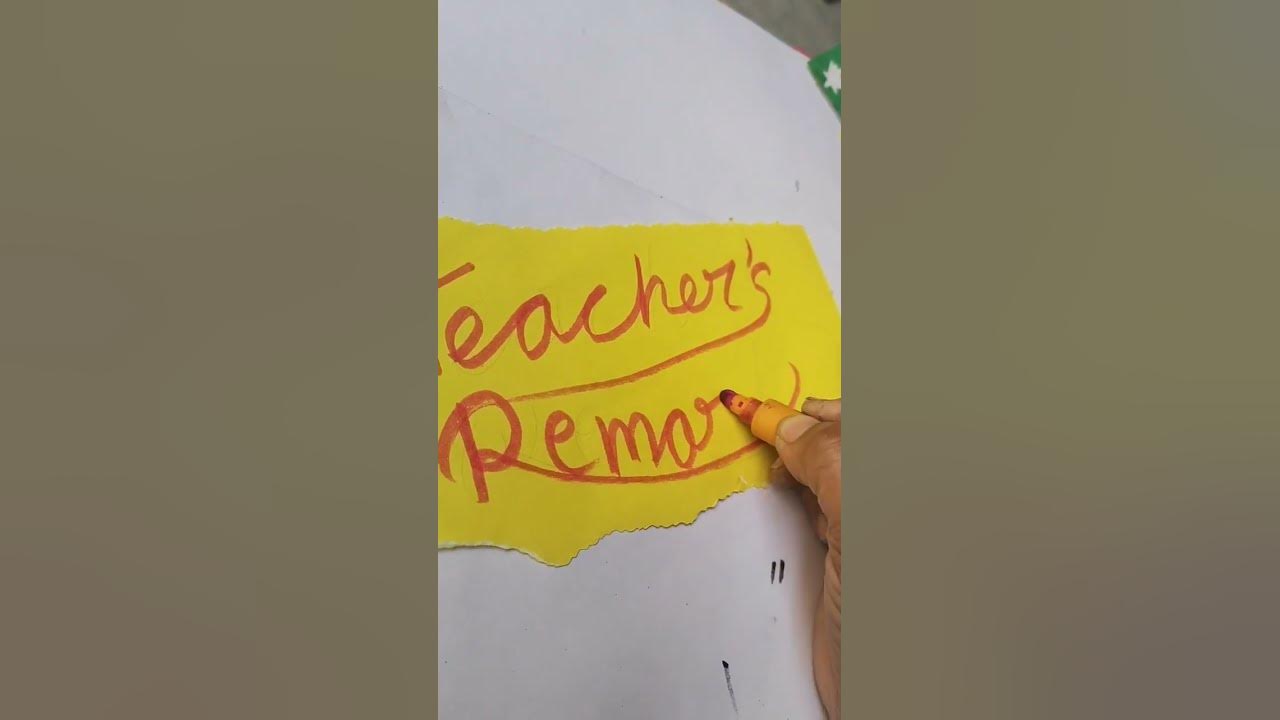 Teacher's
Remar